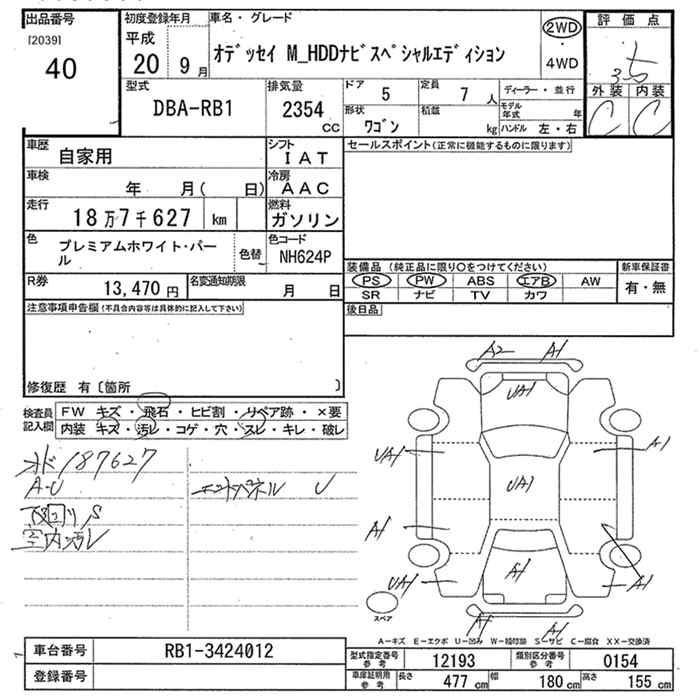 出品番号
[2039]
40
初度登録年月
平成
20 9月
車名・グレード
オデッセイ M_HDDナビスペシャルエディション
2WD
・
4WD
評価点
3.5
外装 内装
C C
型式
DBA-RB1
排気量
2354 CC
ドア 5
定員 7人
形状 ワゴン
積載 kg
ディーラー・並行
モデル年式 年
ハンドル 左・右
車歴 自家用
シフト IAT
車検 年 月( 日)
冷房 AAC
走行 18万7千627 km
燃料 ガソリン
色 プレミアムホワイト・パール
色替
色コード NH624P
R券 13,470円
名変通知期限 月 日
セールスポイント(正常に機能するものに限ります)
装備品 (純正品に限り○をつけてください)
PS PW ABS エアB AW
SR ナビ TV カワ
新車保証書
有・無
後日品
注意事項申告欄(不具合内容等は具体的に記入して下さい)
修復歴 有〔箇所 〕
検査員記入欄
FW キズ・飛石・ヒビ割・リペア跡・×要
内装 キズ・汚レ・コゲ・穴・スレ・キレ・破レ
187627
A-U
下回りS
室内汚レ
エンドパネル U
A2 A1
UA1
UA1 A1
UA1
A1
A1
UA1 A1
A1 A1
スペア
A-キズ E-エクボ U-凹み W-補修跡 S-サビ C-腐食 XX-交換済
車台番号 RB1-3424012
登録番号
型式指定番号 参考 12193
類別区分番号 参考 0154
車庫証明用 参考 長さ 477 cm 幅 180 cm 高さ 155 cm